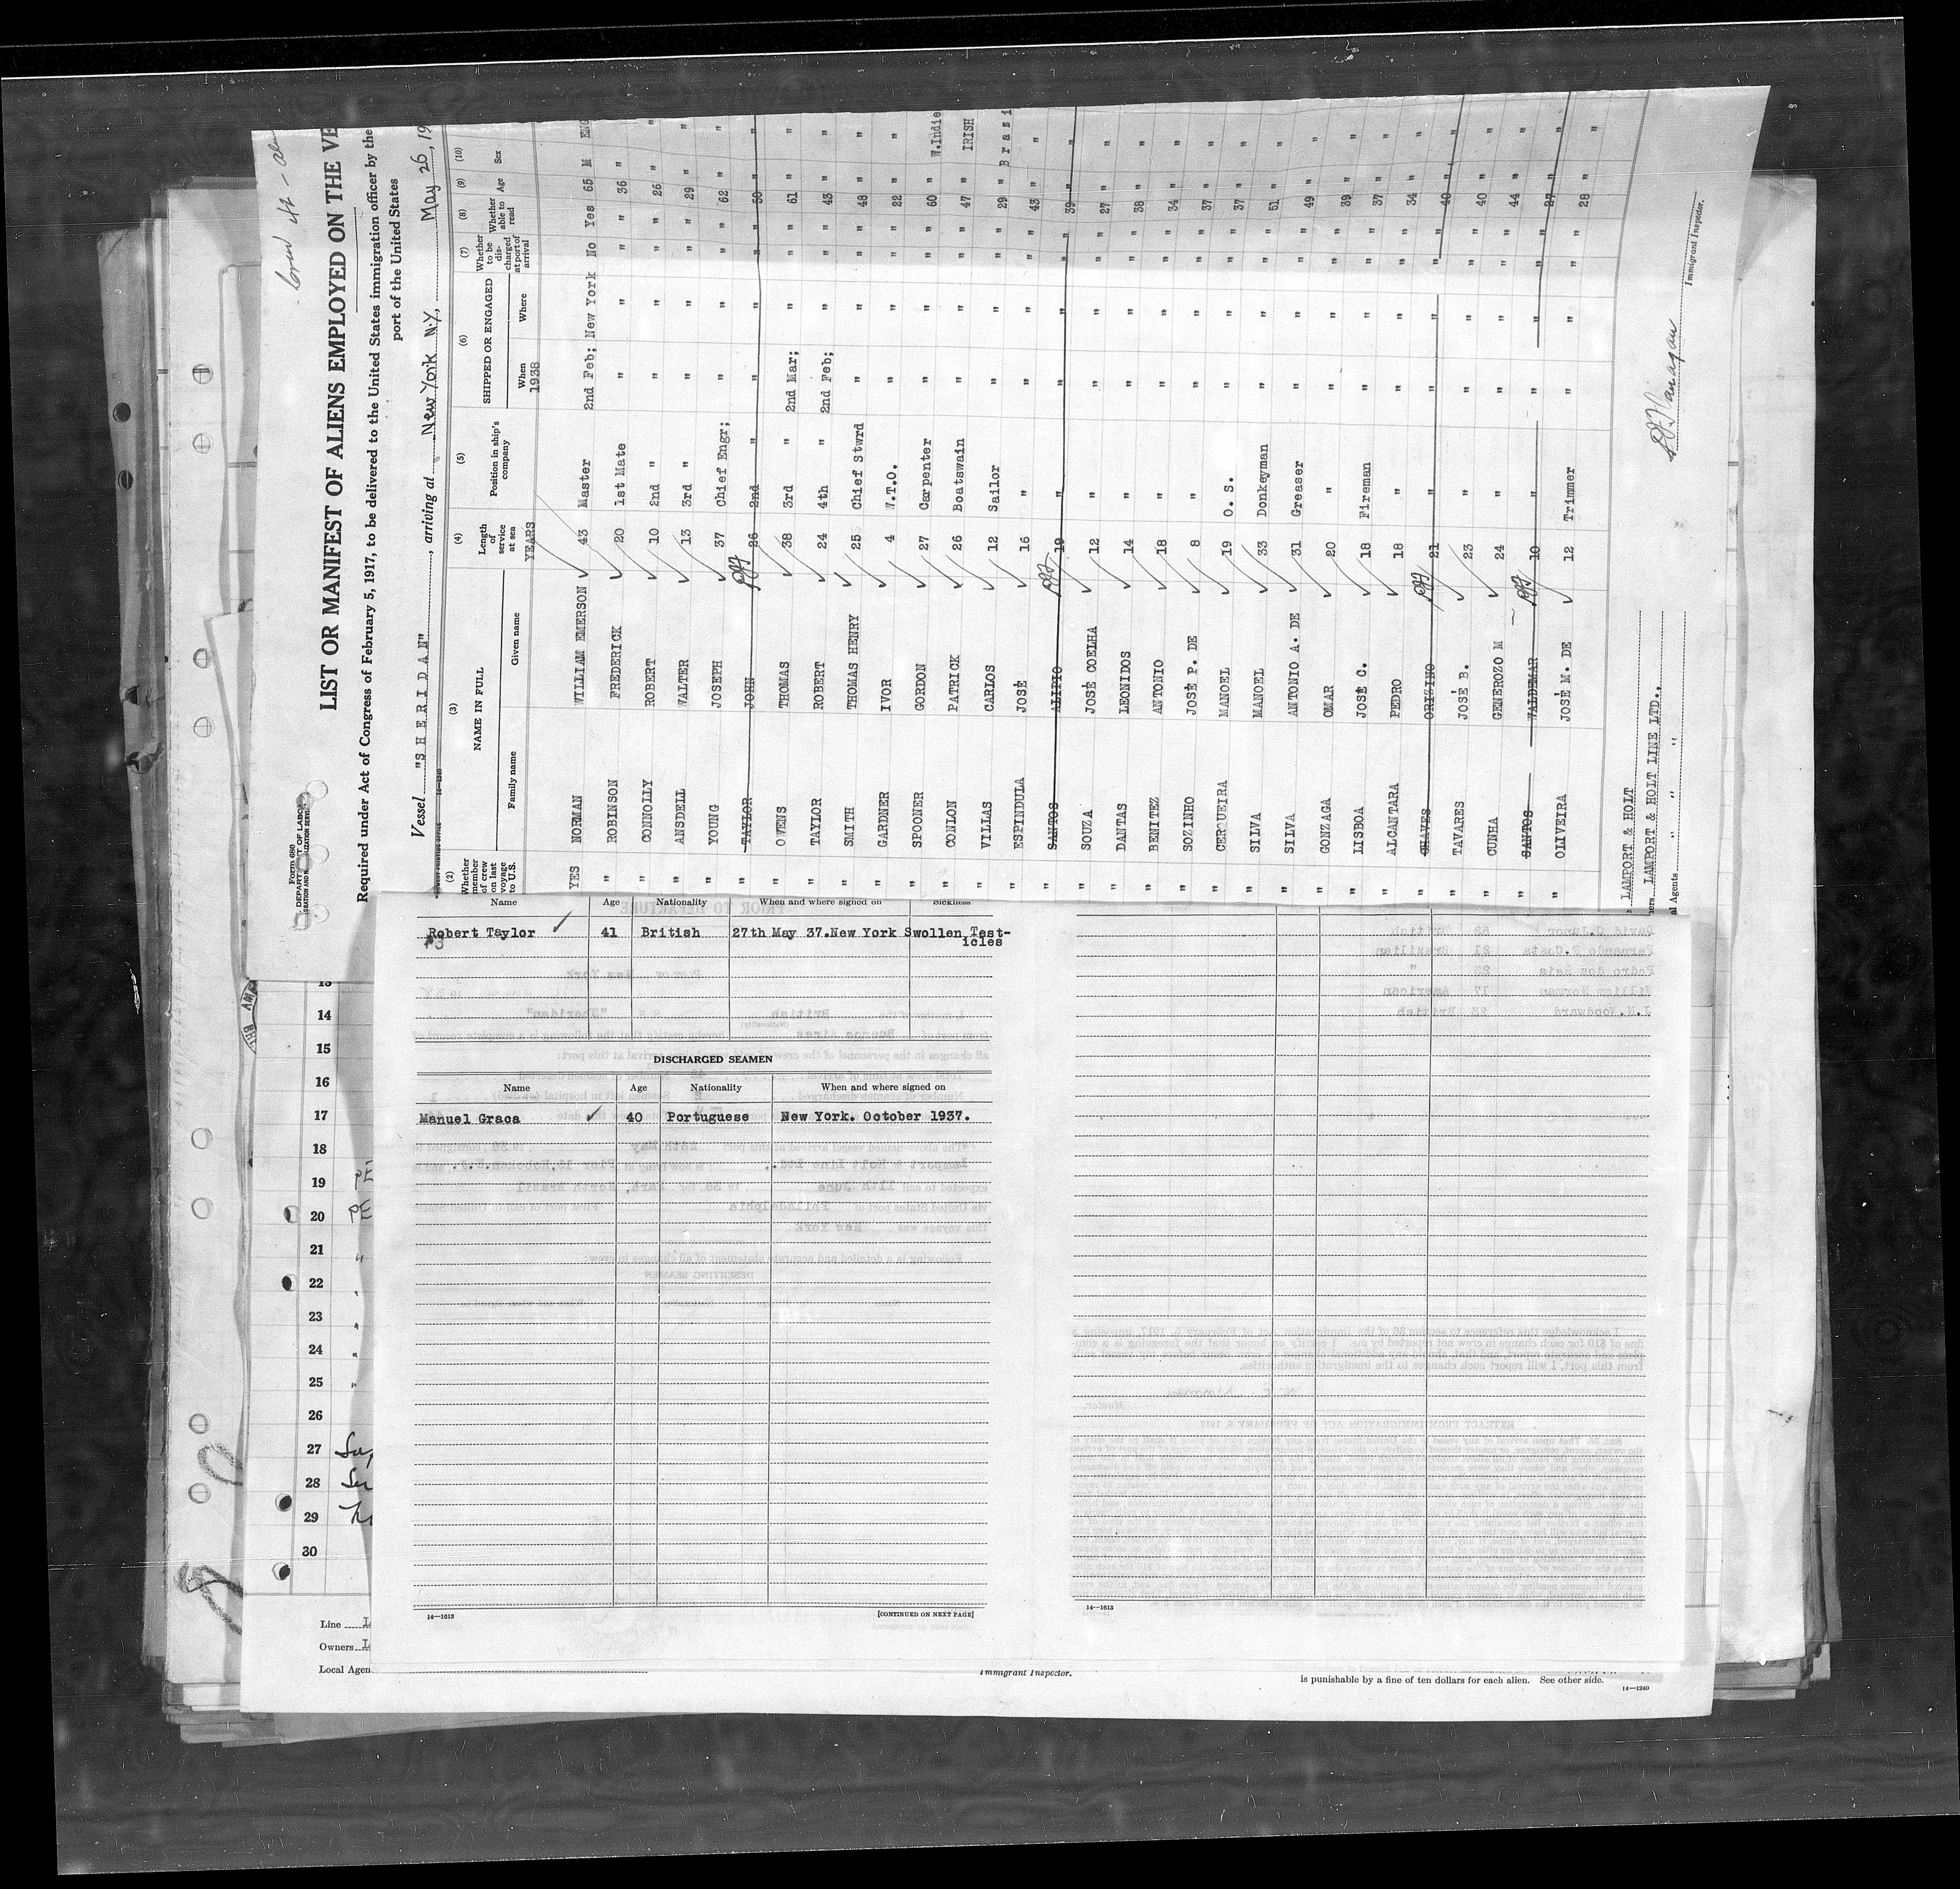 Form 680
LIST OR MANIFEST OF ALIENS EMPLOYED ON THE VE
Required under Act of Congress of February 5, 1917, to be delivered to the United States immigration officer by the
port of the United States
Vessel "SHERIDAN", arriving at New York N.Y., May 26, 19
(2) (3) (4) (5) (6) (7) (8) (9) (10)
Whether member of crew on last voyage to U.S. NAME IN FULL Family name Given name Length of service at sea Position in ship's company SHIPPED OR ENGAGED When Where Whether to be discharged at port of arrival Whether able to read Age Sex
YEARS 1938
YES NORMAN WILLIAM EMERSON 43 Master 2nd Feb; New York No Yes 65 M ENG
" ROBINSON FREDERICK 20 1st Mate " " " " 36 "
" CONNOLLY ROBERT 10 2nd " " " " " 26 " "
" ANSDELL WALTER 13 3rd " " " " " 29 " "
" YOUNG JOSEPH 37 Chief Engr; " " " " 62 " "
" TAYLOR JOHN 26 2nd " " " " " 50 " "
" OWENS THOMAS 38 3rd " 2nd Mar; " " " 61 " "
" TAYLOR ROBERT 24 4th " 2nd Feb; " " " 43 " "
" SMITH THOMAS HENRY 25 Chief Stwrd " " " " 48 " "
" GARDNER IVOR 4 W.T.O. " " " " 22 " "
" SPOONER GORDON 27 Carpenter " " " " 60 " W.Indie
" CONLON PATRICK 26 Boatswain " " " " 47 " IRISH
" VILLAS CARLOS 12 Sailor " " " " 29 " Brazi
" ESPINDULA JOSÉ 16 " " " " " 43 " "
" SANTOS ALIPIO 19 " " " " " 39 " "
" SOUZA JOSÉ COELHA 12 " " " " " 27 " "
" DANTAS LEONIDOS 14 " " " " " 38 " "
" BENITEZ ANTONIO 18 " " " " " 34 " "
" SOZINHO JOSÉ P. DE 8 " " " " " 37 " "
" CERQUEIRA MANOEL 19 O. S. " " " " 37 " "
" SILVA MANOEL 33 Donkeyman " " " " 51 " "
" SILVA ANTONIO A. DE 31 Greaser " " " " 49 " "
" GONZAGA OMAR 20 " " " " " 39 " "
" LISBOA JOSÉ C. 18 Fireman " " " " 37 " "
" ALCANTARA PEDRO 18 " " " " " 34 " "
" CHAVES ORIZINO 21 " " " " " 40 " "
" TAVARES JOSÉ B. 23 " " " " " 40 " "
" CUNHA GENEROZO M 24 " " " " " 44 " "
" SANTOS WALDEMAR 10 " " " " " 27 " "
" OLIVEIRA JOSÉ M. DE 12 Trimmer " " " " 28 " "
LAMPORT & HOLT
LAMPORT & HOLT LINE LTD.,
al Agents " " "
Immigrant Inspector.
Name Age Nationality When and where signed on Sickness
Robert Taylor 41 British 27th May 37.New York Swollen Test-
icles
DISCHARGED SEAMEN
Name Age Nationality When and where signed on
Manuel Graca 40 Portuguese New York. October 1937.
14—1613 [CONTINUED ON NEXT PAGE]
14—1613
14
15
16
17
18
19
20
21
22
23
24
25
26
27
28
29
30
Line
Owners
Local Agen
Immigrant Inspector.
is punishable by a fine of ten dollars for each alien. See other side.
14—1240